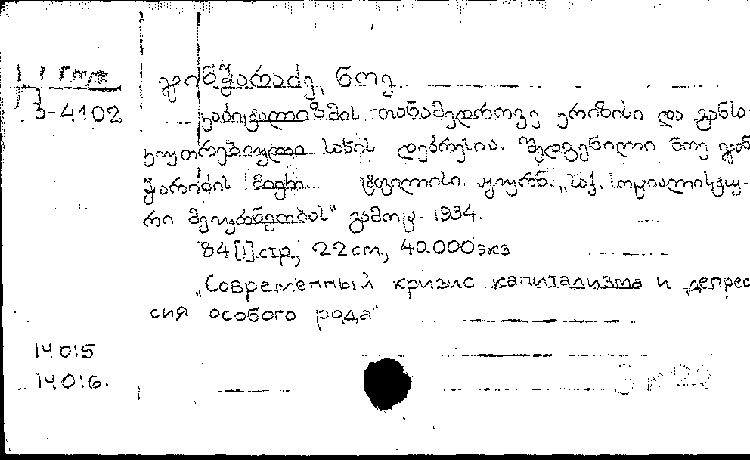 3-4102
ჟინჭარაძე, ნოე
კაპიტალიზმის თანამედროვე კრიზისი და განსა-
კუთრებული სახის დეპრესია. შედგენილი ნოე
ტფილისი. ჟურნ. „საქ. სოციალისტუ-
რი მეურნეობის" გამოც. 1934.
84[1].стр., 22 cm, 40.000 экз
„Современный кризис капитализма и депрес
сия особого рода"
14015
14016.